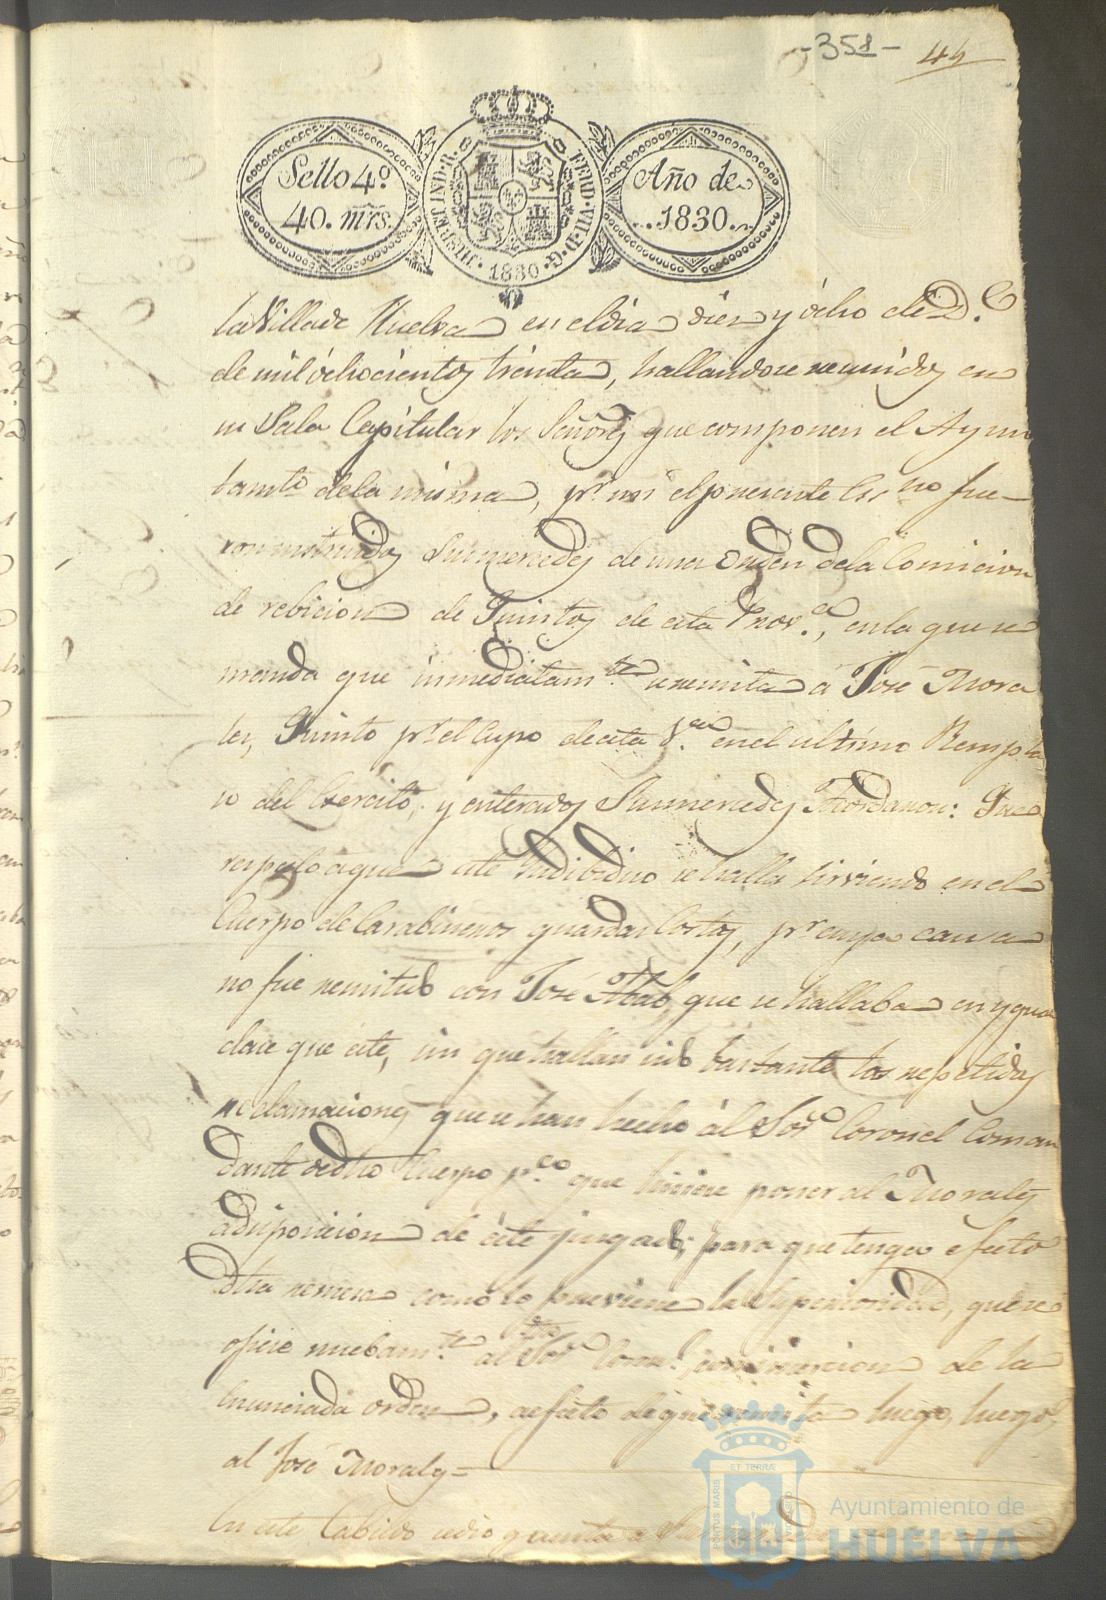 -358-
44
Sello 4º
40. mrs.
HISP. ET IND. R. FERD. VII. D. G. 1830
Año de
1830.
la Villa de Huelva en el dia diez y ócho de D.e
de mil óchocientos treinta, hallandose reunidos en
su Sala Capitular los Señores que componen el Ayun
tamto. de la misma, pr. mi el presente Esno fue-
ron instruidos Sus mercedes de una orden de la Comicion
de rebicion de Quintos de esta Prov.a, en la que se
manda que inmediatamte. se remita á José Mora
les, Quinto pr. el Cupo de esta V.a en el ultimo Rempla
so del Exercito; y enterados Sus mercedes Acordaron: Que
respecto a que este Indibiduo se halla sirviendo en el
Cuerpo de Carabineros guarda Costas, pr. cuya causa
no fue remitido con José que se hallaba en ygual
clase que este, sin que hallan sido bastante los repetidas
reclamaciones que se han hecho al Sor. Coronel Coman
dante de dho Cuerpo pa. que hiciese poner al Morales
a disposicion de este juzgado, para que tenga efecto
dha remesa como lo previene la Superioridad, que se
oficie nuebamte. al dho Sor. Coronl. con insercion de la
enunciada orden, a efecto de que remita luego, luego,
al José Morales=
En este Cabildo se dio quenta a Sus mercedes
PORTUS MARIS ET TERRÆ CUSTODIA
Ayuntamiento de
HUELVA